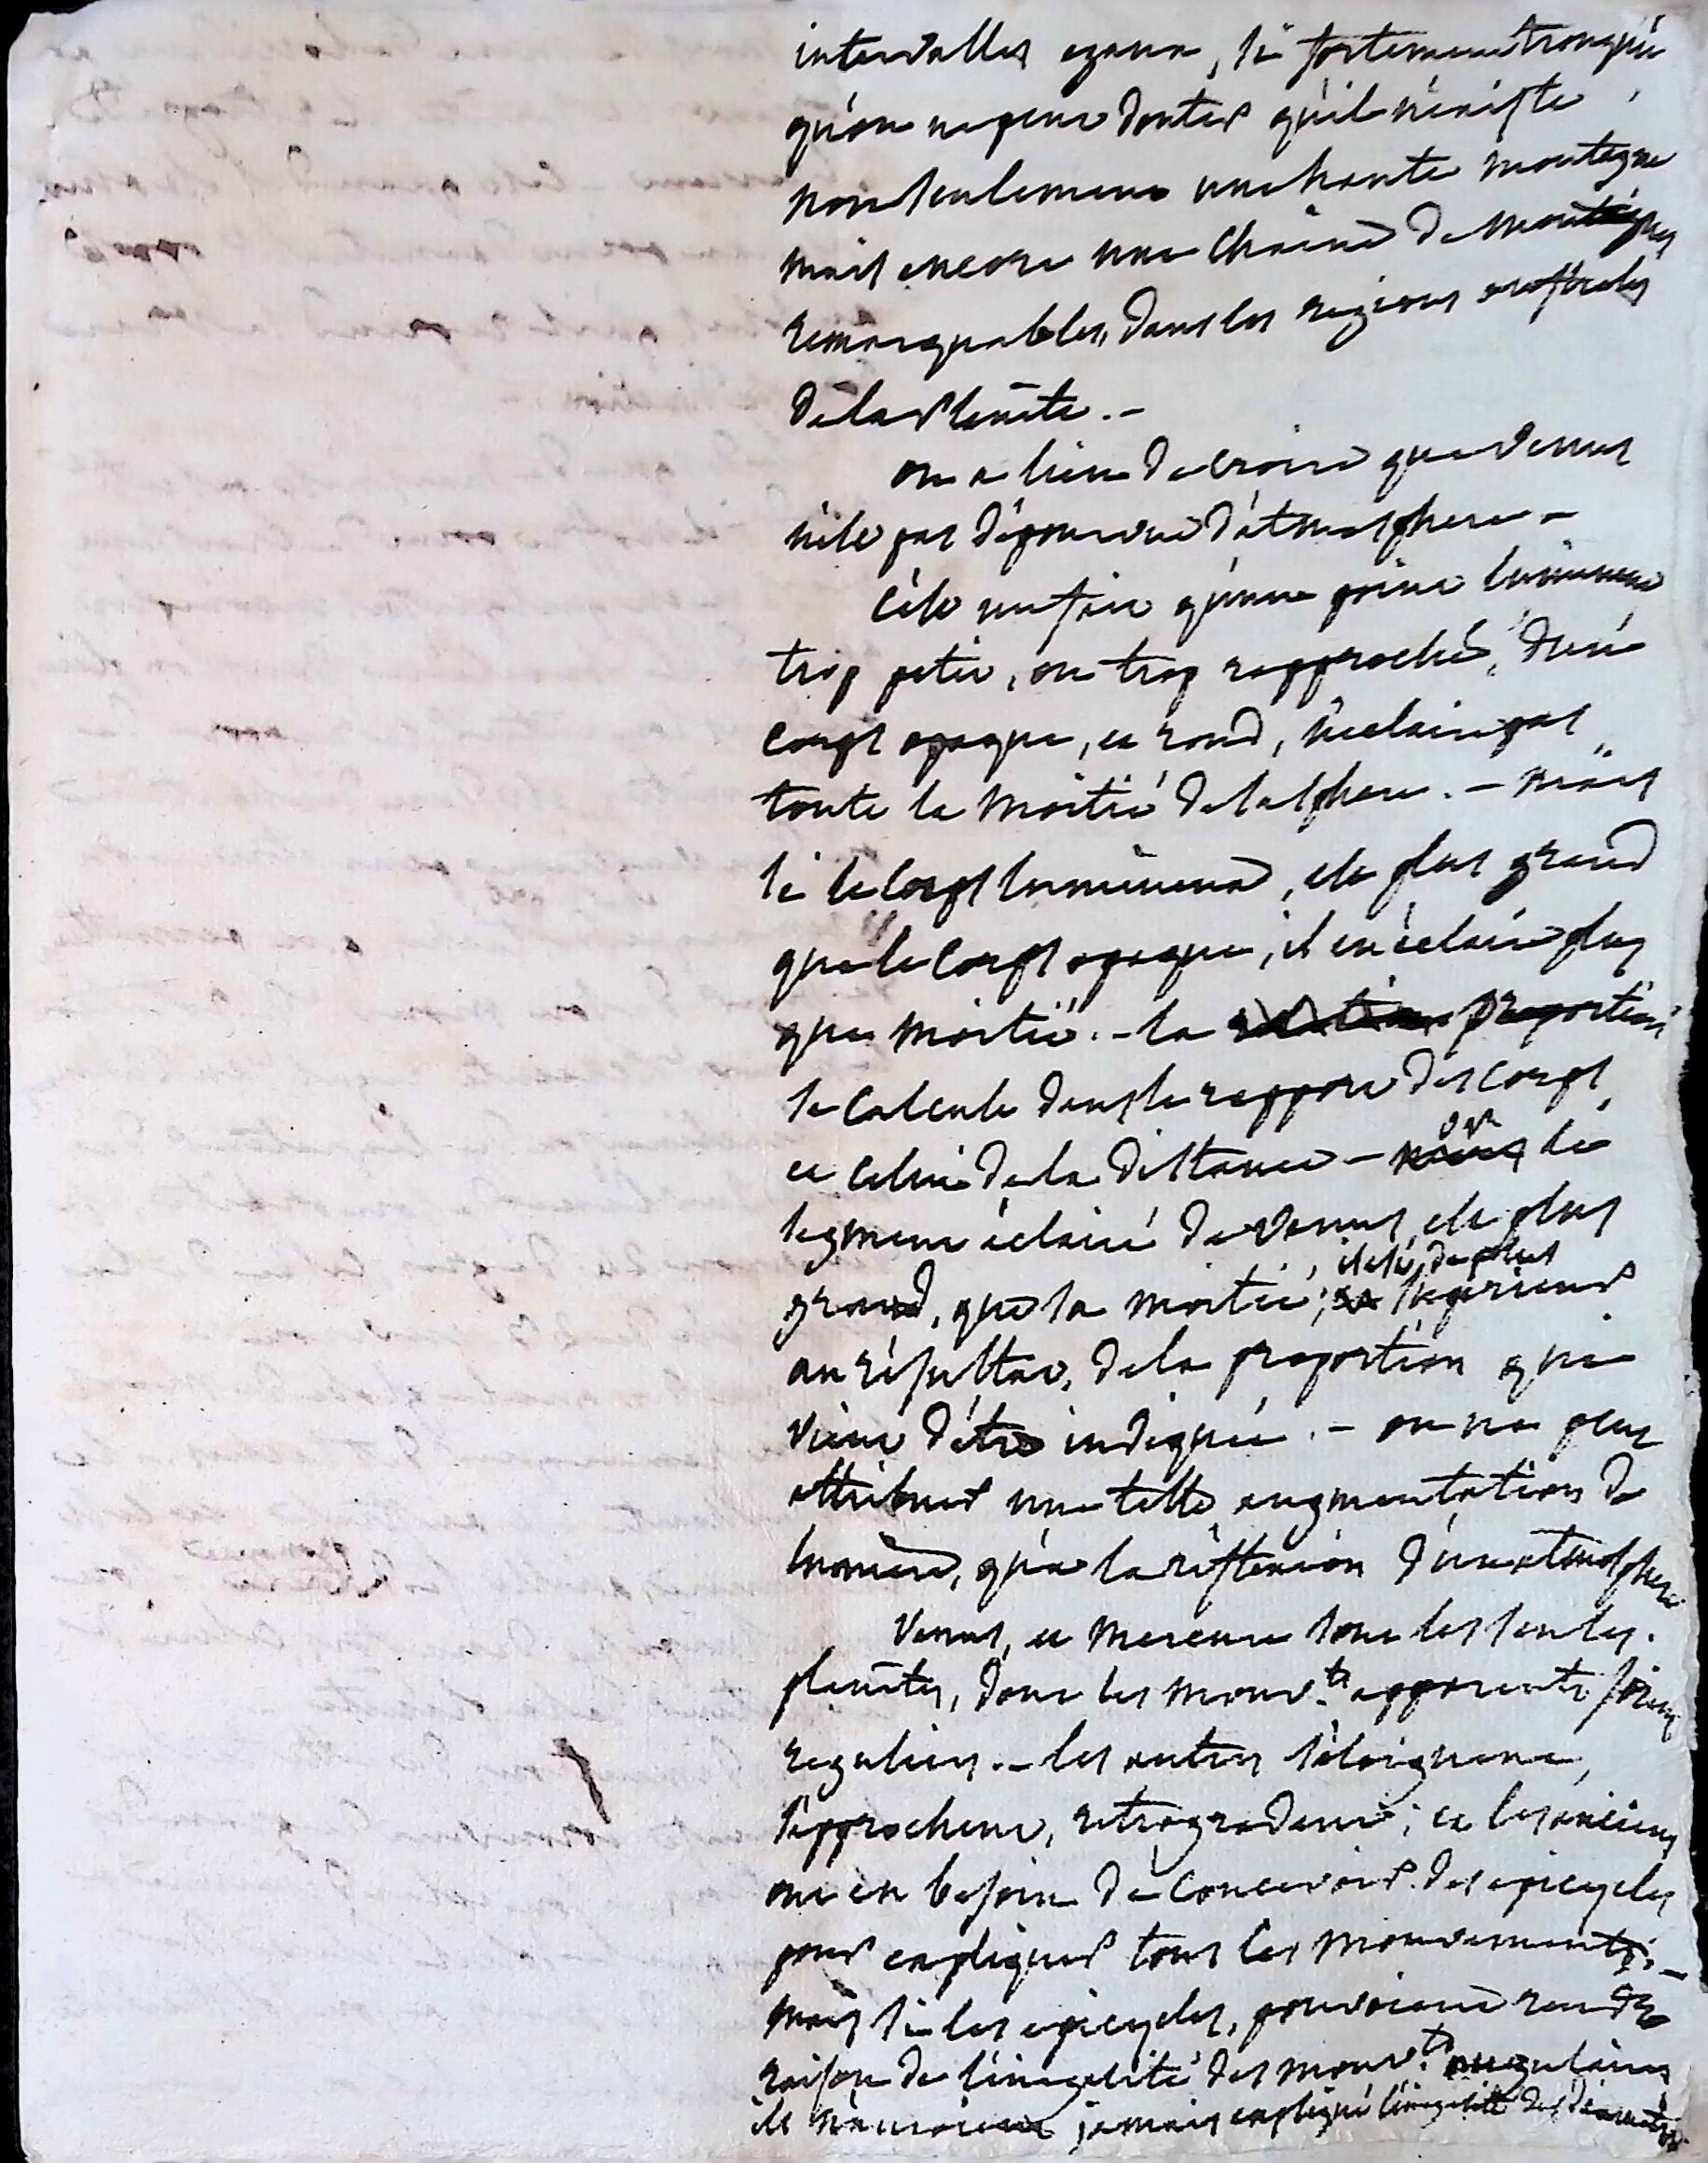 intervalles egaux, si fortement tronquée
qu'on ne peut douter qu'il n'existe,
non seulement une haute montagne
mais encore une chaine de montagnes
remarquables, dans les regions australes
de la Planète. -
on a lieu de croire que Venus
n'est pas dépourvue d'atmosphere -
c'est un fait qu'un point lumineux
trop petit, ou trop rapproché, d'un
corps opaque, et rond, n'eclaire pas
toute la moitié de la sphere. - mais
si le corps lumineux, est plus grand
que le corps opaque, il en éclaire plus
que moitié. - la proportion
se calcule dans le rapport des corps,
et celui de la distance - mais or le
segment éclairé de Venus, est plus
grand, que sa moitié; il est, de plus superieur
au résultat, de la proportion qui
vient d'être indiquée. - on ne peut
attribuer une telle augmentation de
lumiere, qu'a la réflexion d'une atmosphere
Venus, et mercure sont les seules
planètes, dont les mouv.ts apparents soient
reguliers. - les autres s'éloignent,
s'approchent, retrogradent; et les anciens
ont eu besoin de concevoir des epicycles
pour expliquer tous les mouvements. -
mais si les epicycles, pouvoient rendre
raison de l'inegalité des mouv.ts angulaires
ils n'auroient jamais expliqué l'inegalité des diametres.